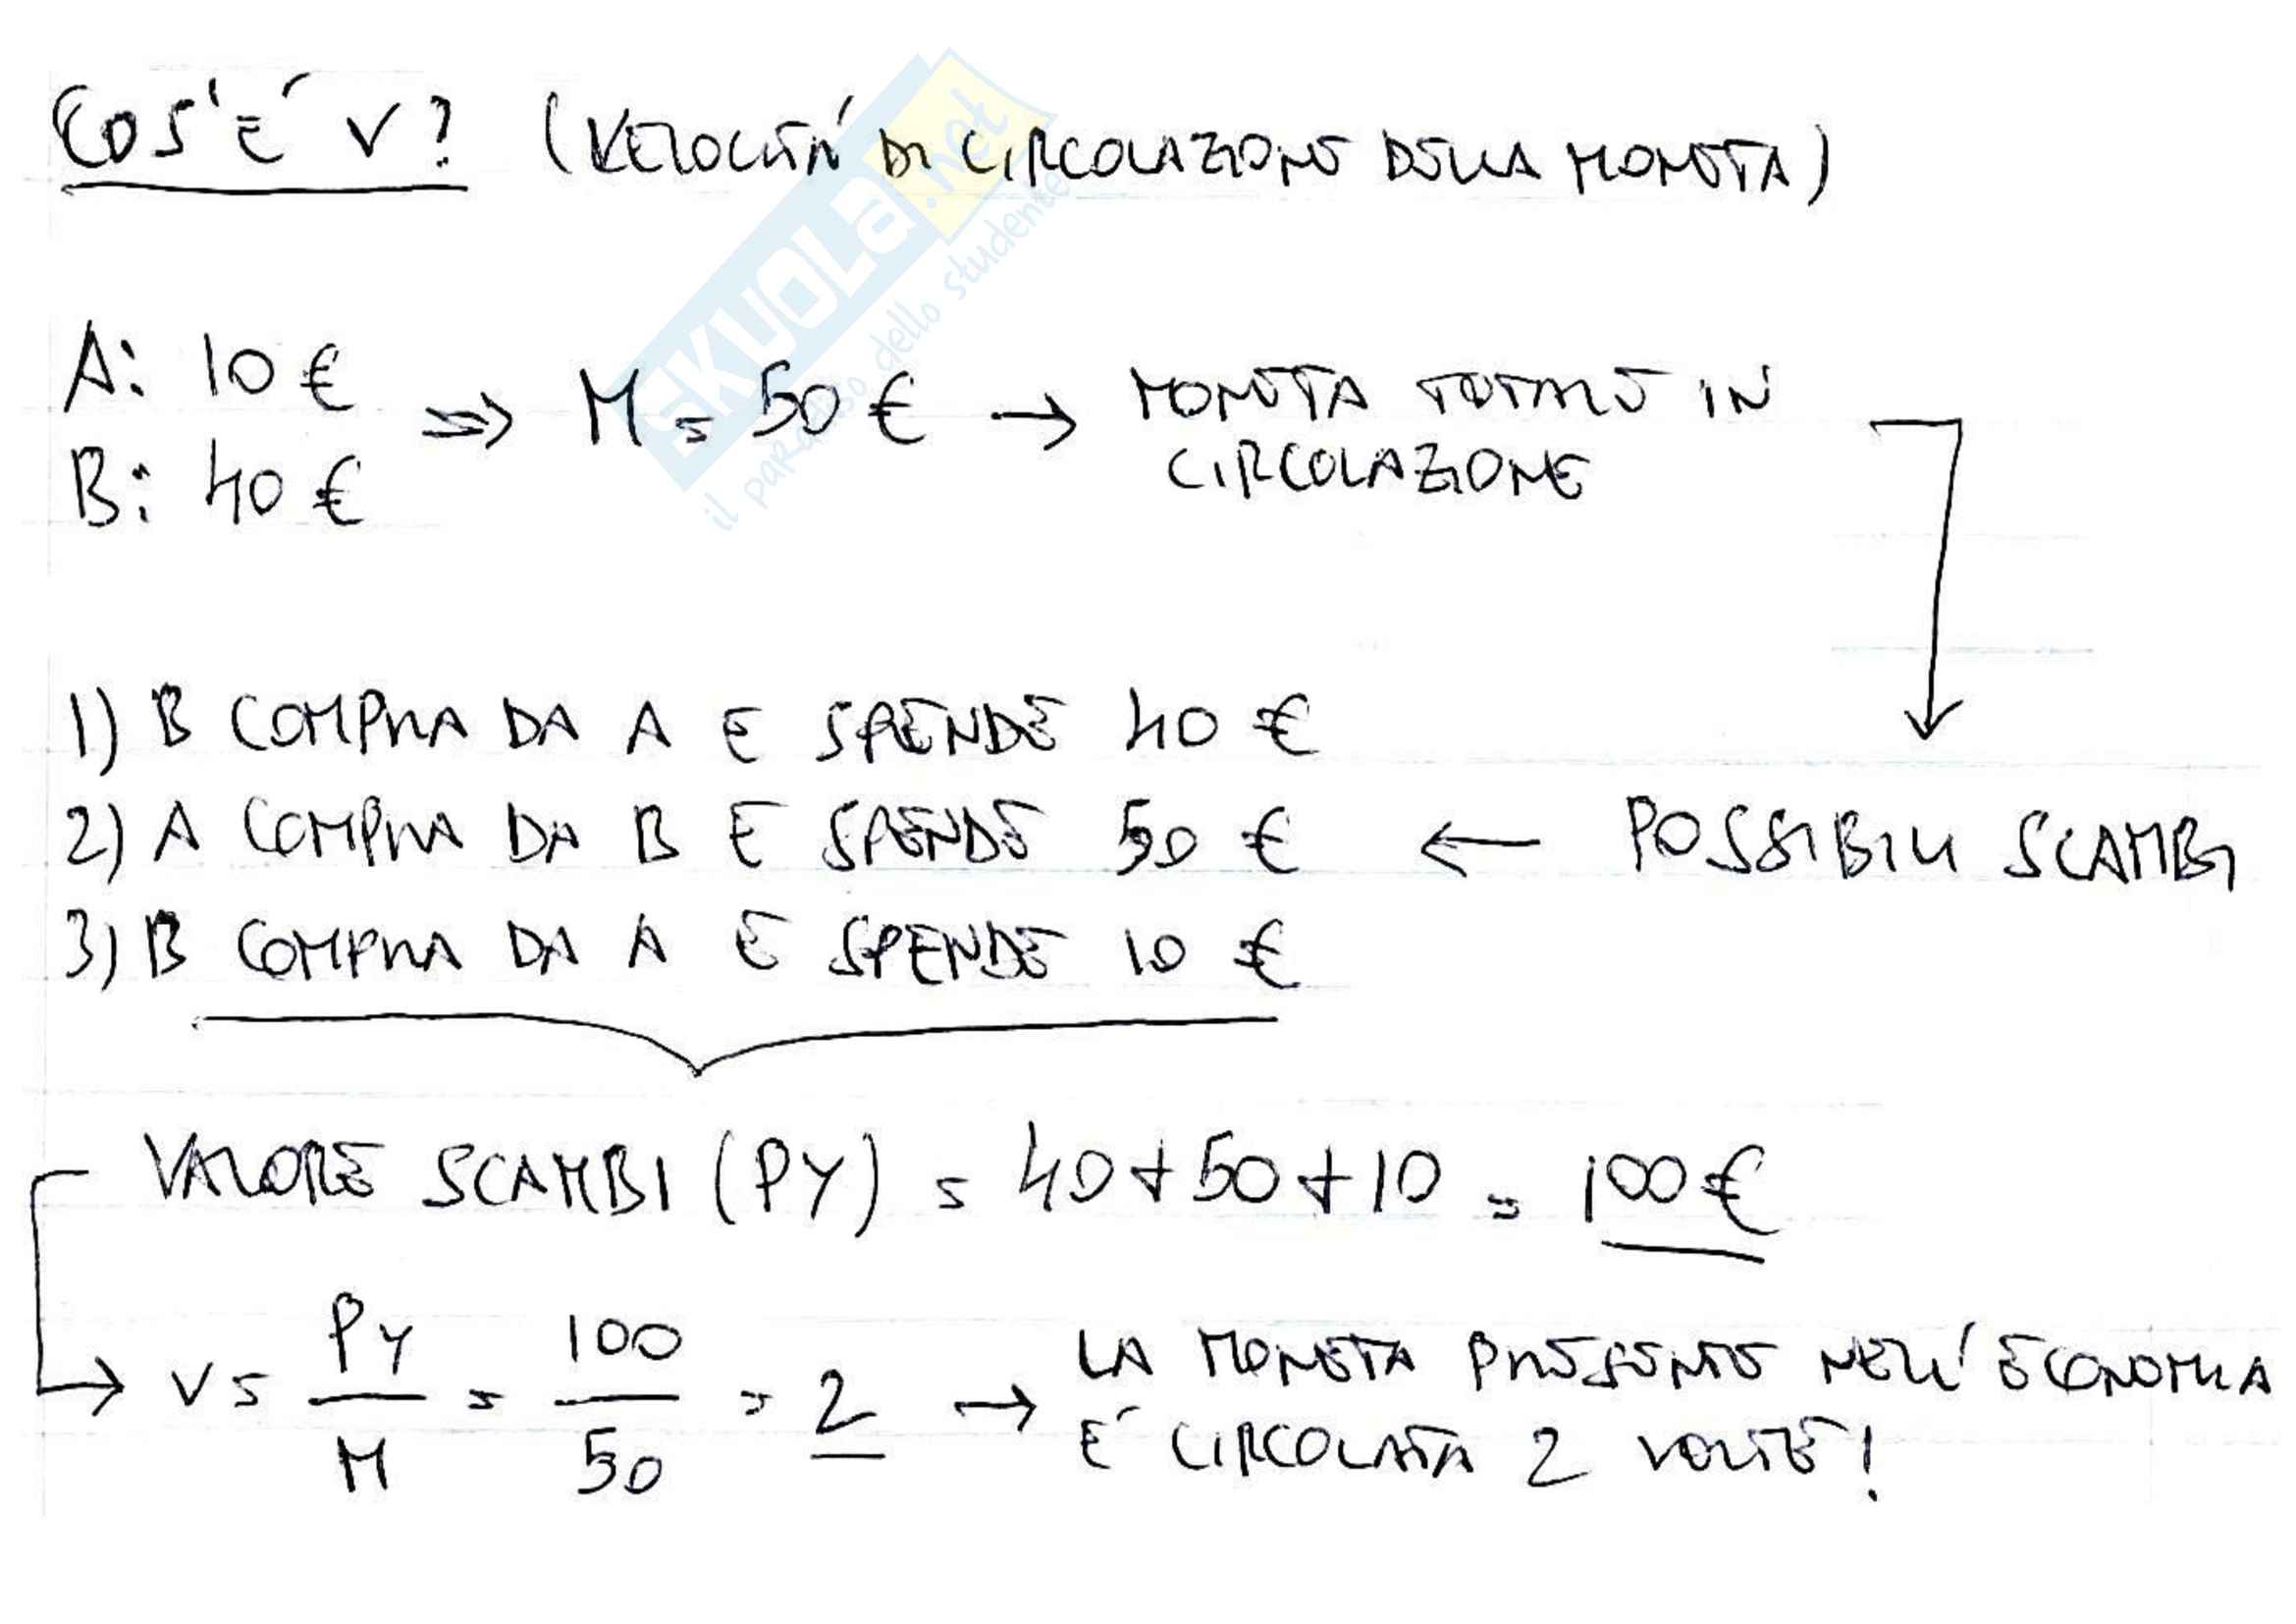 COS'É V? (VELOCITÁ DI CIRCOLAZIONE DELLA MONETA)
A: 10 €
B: 40 €
⇒ M = 50 € → MONETA TOTALE IN
CIRCOLAZIONE
1) B COMPRA DA A E SPENDE 40 €
2) A COMPRA DA B E SPENDE 50 € ← POSSIBILI SCAMBI
3) B COMPRA DA A E SPENDE 10 €
VALORE SCAMBI (PY) = 40+50+10 = 100 €
→ V = PY/M = 100/50 = 2 → LA MONETA PRESENTE NELL'ECONOMIA
É CIRCOLATA 2 VOLTE!
SKUOLA.net
il paradiso dello studente